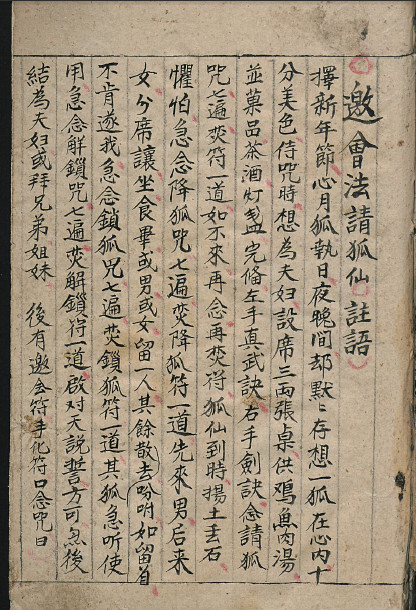 邀會法請狐仙註語
擇新年節心月狐執日夜晚間却默〻存想一狐在心内十
分美色侍咒時想為夫妇設席三両張桌供鸡魚肉湯
並菓品茶酒灯盏完俻左手真武訣右手劍訣念請狐
咒七遍焚符一道如不來再念再焚符狐仙到時揚土丢石
懼怕急念降狐咒七遍焚降狐符一道先來男后来
女分席讓坐食畢或男或女留一人其餘散去吩咐如留自
不肯遂我急念鎖狐咒七遍焚鎖狐符一道其狐急听使
用急念解鎖咒七遍焚解鎖符一道啟对天說誓方可然後
結為夫妇或拜兄弟姐妹 後有邀会符手化符口念咒曰